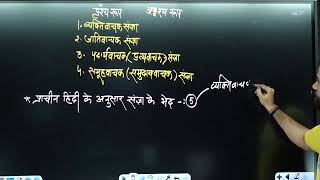 दृश्य रूप अदृश्य रूप
1. व्यक्तिवाचक संज्ञा
2. जातिवाचक संज्ञा
3. पदार्थवाचक (द्रव्यवाचक) संज्ञा
4. समूहवाचक (समुदायवाचक) संज्ञा
* प्राचीन हिंदी के अनुसार संज्ञा के भेद -: 5
व्यक्तिवाचक